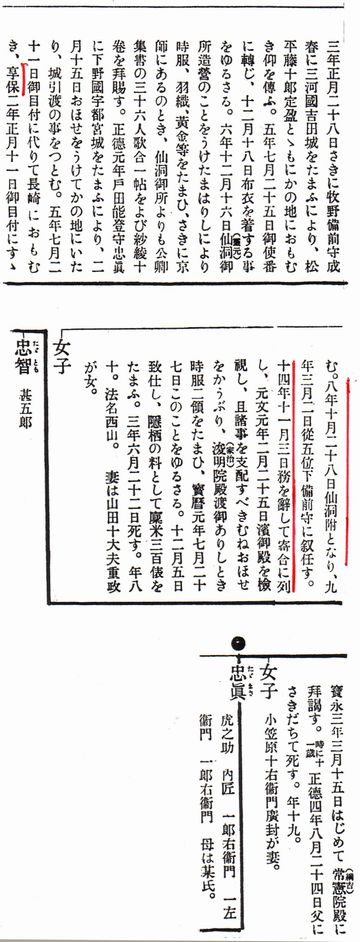 三年正月二十八日さきに牧野備前守成
春に三河國吉田城をたまふにより、松
平藤十郎定盈とゝもにかの地におもむ
き仰を傳ふ。五年七月二十五日御使番
に轉じ、十二月十八日布衣を着する事
をゆるさる。六年十二月十六日仙洞御(靈元)
所造營のことをうけたまはりしにより
時服、羽織、黃金等をたまひ、さきに京
師にあるのとき、仙洞御所よりも公卿
集書の三十六人歌合一帖をよび紗綾十
卷を拜賜す。正德元年戸田能登守忠眞
に下野國宇都宮城をたまふにより、二
月十五日おほせをうけてかの地にいた
り、城引渡の事をつとむ。五年七月二
十一日御目付に代りて長崎におもむ
き、享保二年正月十一日御目付にすゝ
む。八年十月二十八日仙洞附となり、九
年三月二日從五位下備前守に叙任す。
十四年十一月三日務を辭して寄合に列
し、元文元年二月二十五日濱御殿を檢
視し、且諸事を支配すべきむねおほせ
をかうぶり、浚明院殿渡御ありしとき(家治)
時服二領をたまひ、寶曆元年七月二十
七日このことをゆるさる。十二月五日
致仕し、隱栖の料として廩米三百俵を
たまふ。三年六月二十二日死す。年八
十。法名西山。 妻は山田十大夫重政
が女。
女子
忠智 甚五郎
寶永三年三月十五日はじめて常憲院殿に(綱吉)
拜謁す。時に十一歳 正德四年八月二十四日父に
さきだちて死す。年十九。
女子
小笠原十右衞門廣封が妻。
忠眞
虎之助 內匠 一郎右衞門 一左
衞門 一郎右衞門 母は某氏。